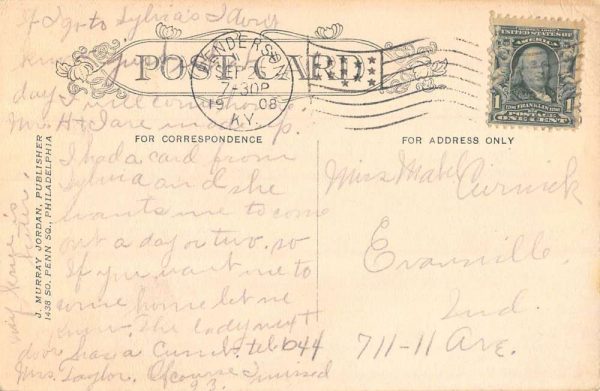 If I go to Sylvia's I don't
know just
day I will come home.
Mrs. H + I are
POST CARD
HENDERSON
SEP 2
7-30P
1908
KY.
1
BEN. FRANKLIN
POSTAGE
ONE CENT
FOR CORRESPONDENCE
I had a card from
Sylvia and she
wants me to come
out a day or two, so
If you want me to
come home let me
know. The lady next
door has a Cumb. tel 1044
Mrs. Taylor. Of course I missed
J. MURRAY JORDAN, PUBLISHER
1438 SO. PENN SQ., PHILADELPHIA
FOR ADDRESS ONLY
Miss Mabel Curnick
Evansville,
Ind.
711-11 Ave.